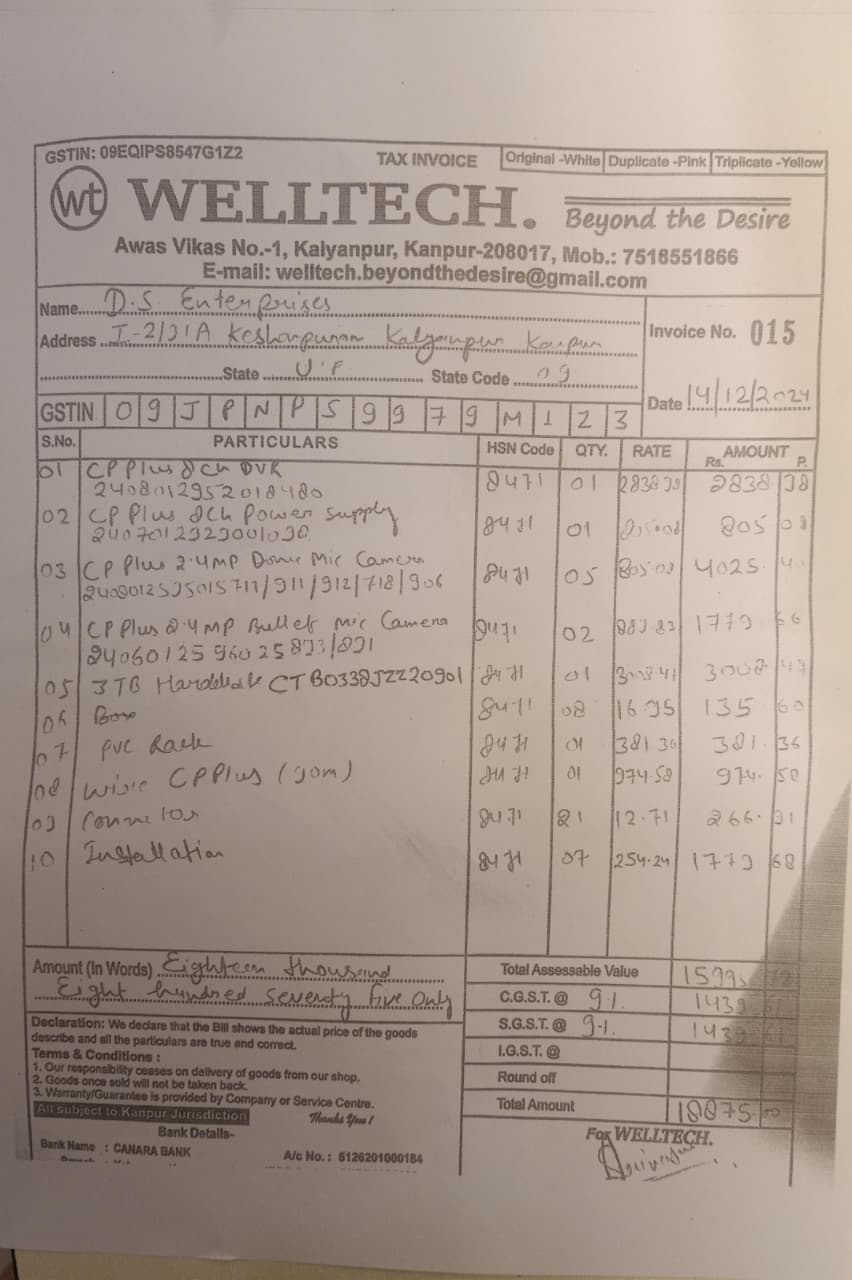 GSTIN: 09EQIPS8547G1Z2
TAX INVOICE
Original -White Duplicate -Pink Triplicate -Yellow
wt WELLTECH. Beyond the Desire
Awas Vikas No.-1, Kalyanpur, Kanpur-208017, Mob.: 7518551866
E-mail: welltech.beyondthedesire@gmail.com
Name D.S. Enterprises
Address Kalyanpur
State U.P State Code 09
Invoice No. 015
Date 14/12/2024
GSTIN 09JPNPS9979M1Z3
S.No. PARTICULARS HSN Code QTY. RATE AMOUNT
Rs. P.
01 CP Plus 8ch DVR 8471 01 2838
2408012952018480
02 CP Plus 8ch Power Supply 8471 01 805
03 CP Plus 2.4MP Mic Camera 8471 05 4025
04 CP Plus 2.4MP Bullet Mic Camera 8471 02 1779 66
05 3TB 8471 01
06 Box 8471 08 16 95 135 60
07 PVC Rack 8471 01 381 36 381. 36
08 CP Plus (90m) 8471 01 974.58 974. 58
09 8471 21 12.71 266. 91
10 Installation 8471 07 254.24 1779 68
Amount (In Words) Eighteen thousand
Eight hundred seventy five only
Total Assessable Value 15995
C.G.S.T. @ 9% 1439
S.G.S.T. @ 9% 1439
I.G.S.T. @
Round off
Total Amount 18875
Declaration: We declare that the Bill shows the actual price of the goods
describe and all the particulars are true and correct.
Terms & Conditions :
1. Our responsibility ceases on delivery of goods from our shop.
2. Goods once sold will not be taken back.
3. Warranty/Guarantee is provided by Company or Service Centre.
All subject to Kanpur Jurisdiction
Thanks You !
Bank Details-
Bank Name : CANARA BANK A/c No. : 5126201000184
For WELLTECH.